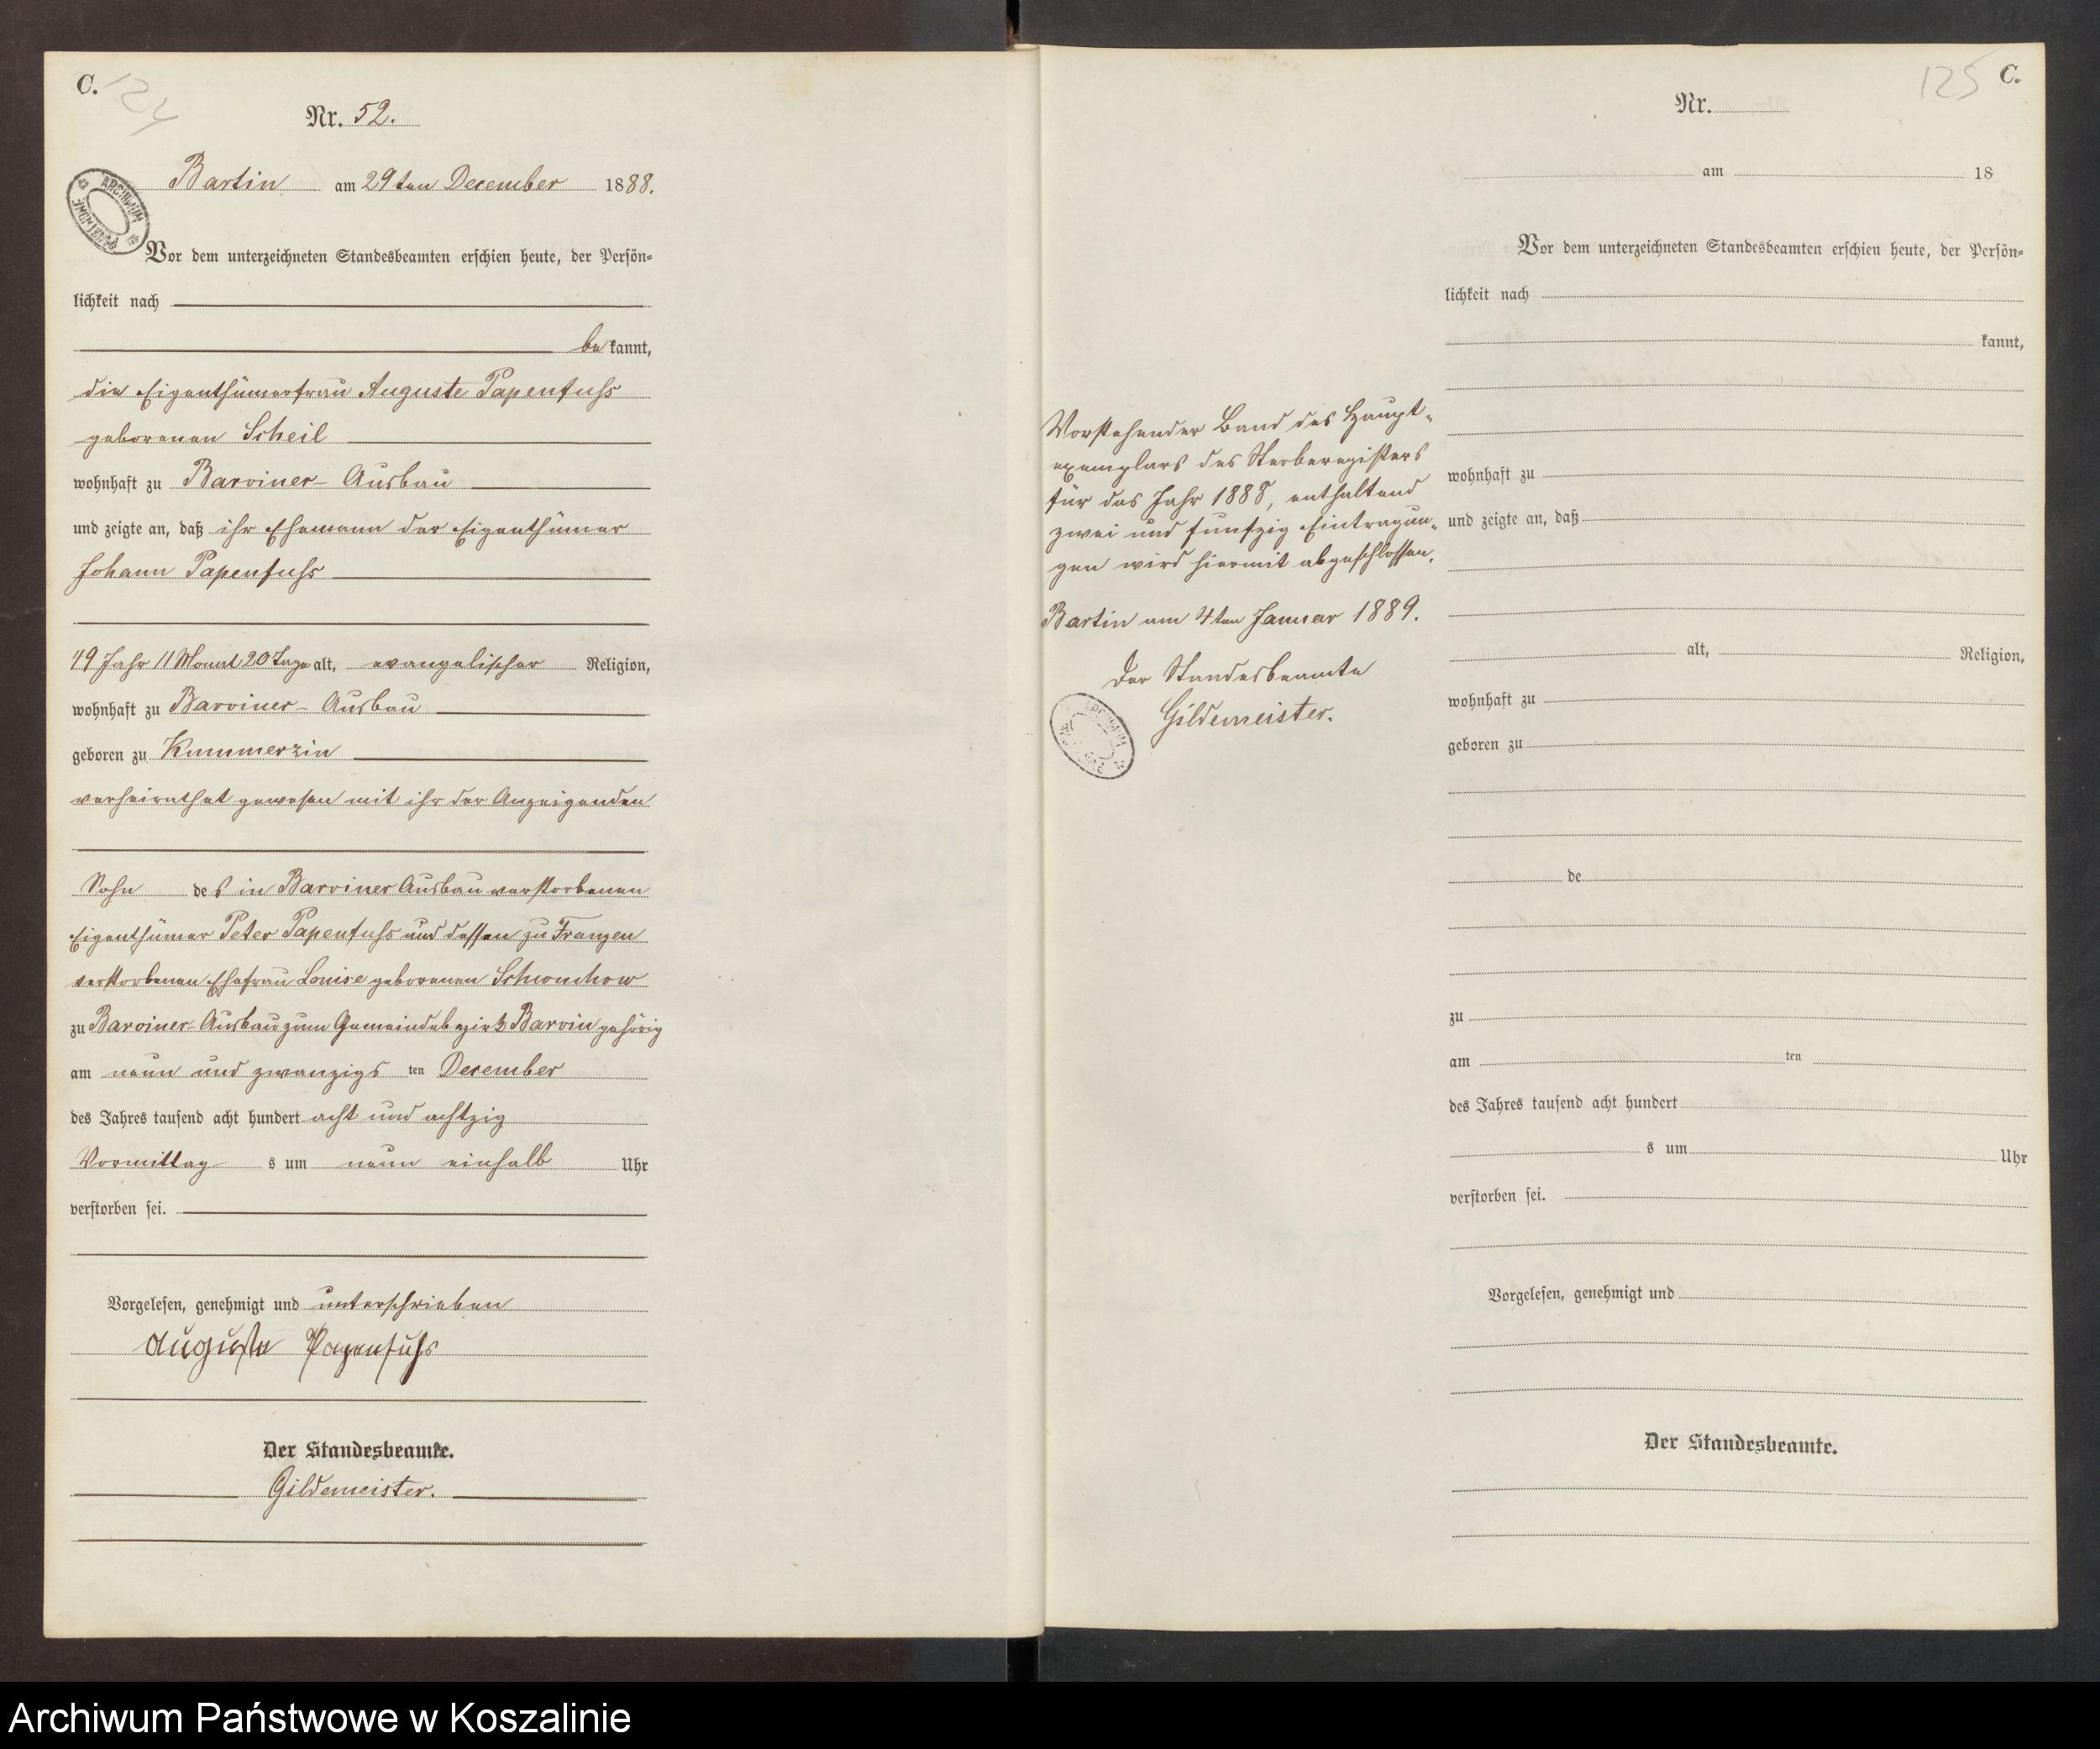 C.
124
Nr. 52.
Bartin am 29ten December 1888.
Vor dem unterzeichneten Standesbeamten erschien heute, der Persön-
lichkeit nach
bekannt,
die Eigenthümerfrau Auguste Papenfuhs
geborenen Scheil
wohnhaft zu Barviner-Ausbau
und zeigte an, daß ihr Ehemann der Eigenthümer
Johann Papenfuhs
49 Jahr 11 Monat 20 Tage alt, evangelischer Religion,
wohnhaft zu Barviner-Ausbau
geboren zu Kummerzin
verheirathet gewesen mit ihr der Anzeigenden
Sohn des in Barviner Ausbau verstorbenen
Eigenthümer Peter Papenfuhs und dessen zu Franzen
verstorbenen Ehefrau Louise geborenen
zu Barviner-Ausbau zum Gemeindebezirk Barvin gehörig
am neun und zwanzigs ten December
des Jahres tausend acht hundert acht und achtzig
Vormittag s um neun einhalb Uhr
verstorben sei.
Vorgelesen, genehmigt und unterschrieben
Auguste Papenfuhs
Der Standesbeamte.
Gildemeister.
ARCHIWUM
125 C.
Nr.
am 18
Vor dem unterzeichneten Standesbeamten erschien heute, der Persön-
lichkeit nach
kannt,
wohnhaft zu
und zeigte an, daß
alt, Religion,
wohnhaft zu
geboren zu
de
zu
am ten
des Jahres tausend acht hundert
s um Uhr
verstorben sei.
Vorgelesen, genehmigt und
Der Standesbeamte.
Vorstehender Band des Haupt-
exemplars des Sterberegisters
für das Jahr 1888, enthaltend
zwei und funfzig Eintragun-
gen wird hiermit abgeschlossen.
Bartin am 4ten Januar 1889.
Der Standesbeamte
Gildemeister.
Archiwum Państwowe w Koszalinie